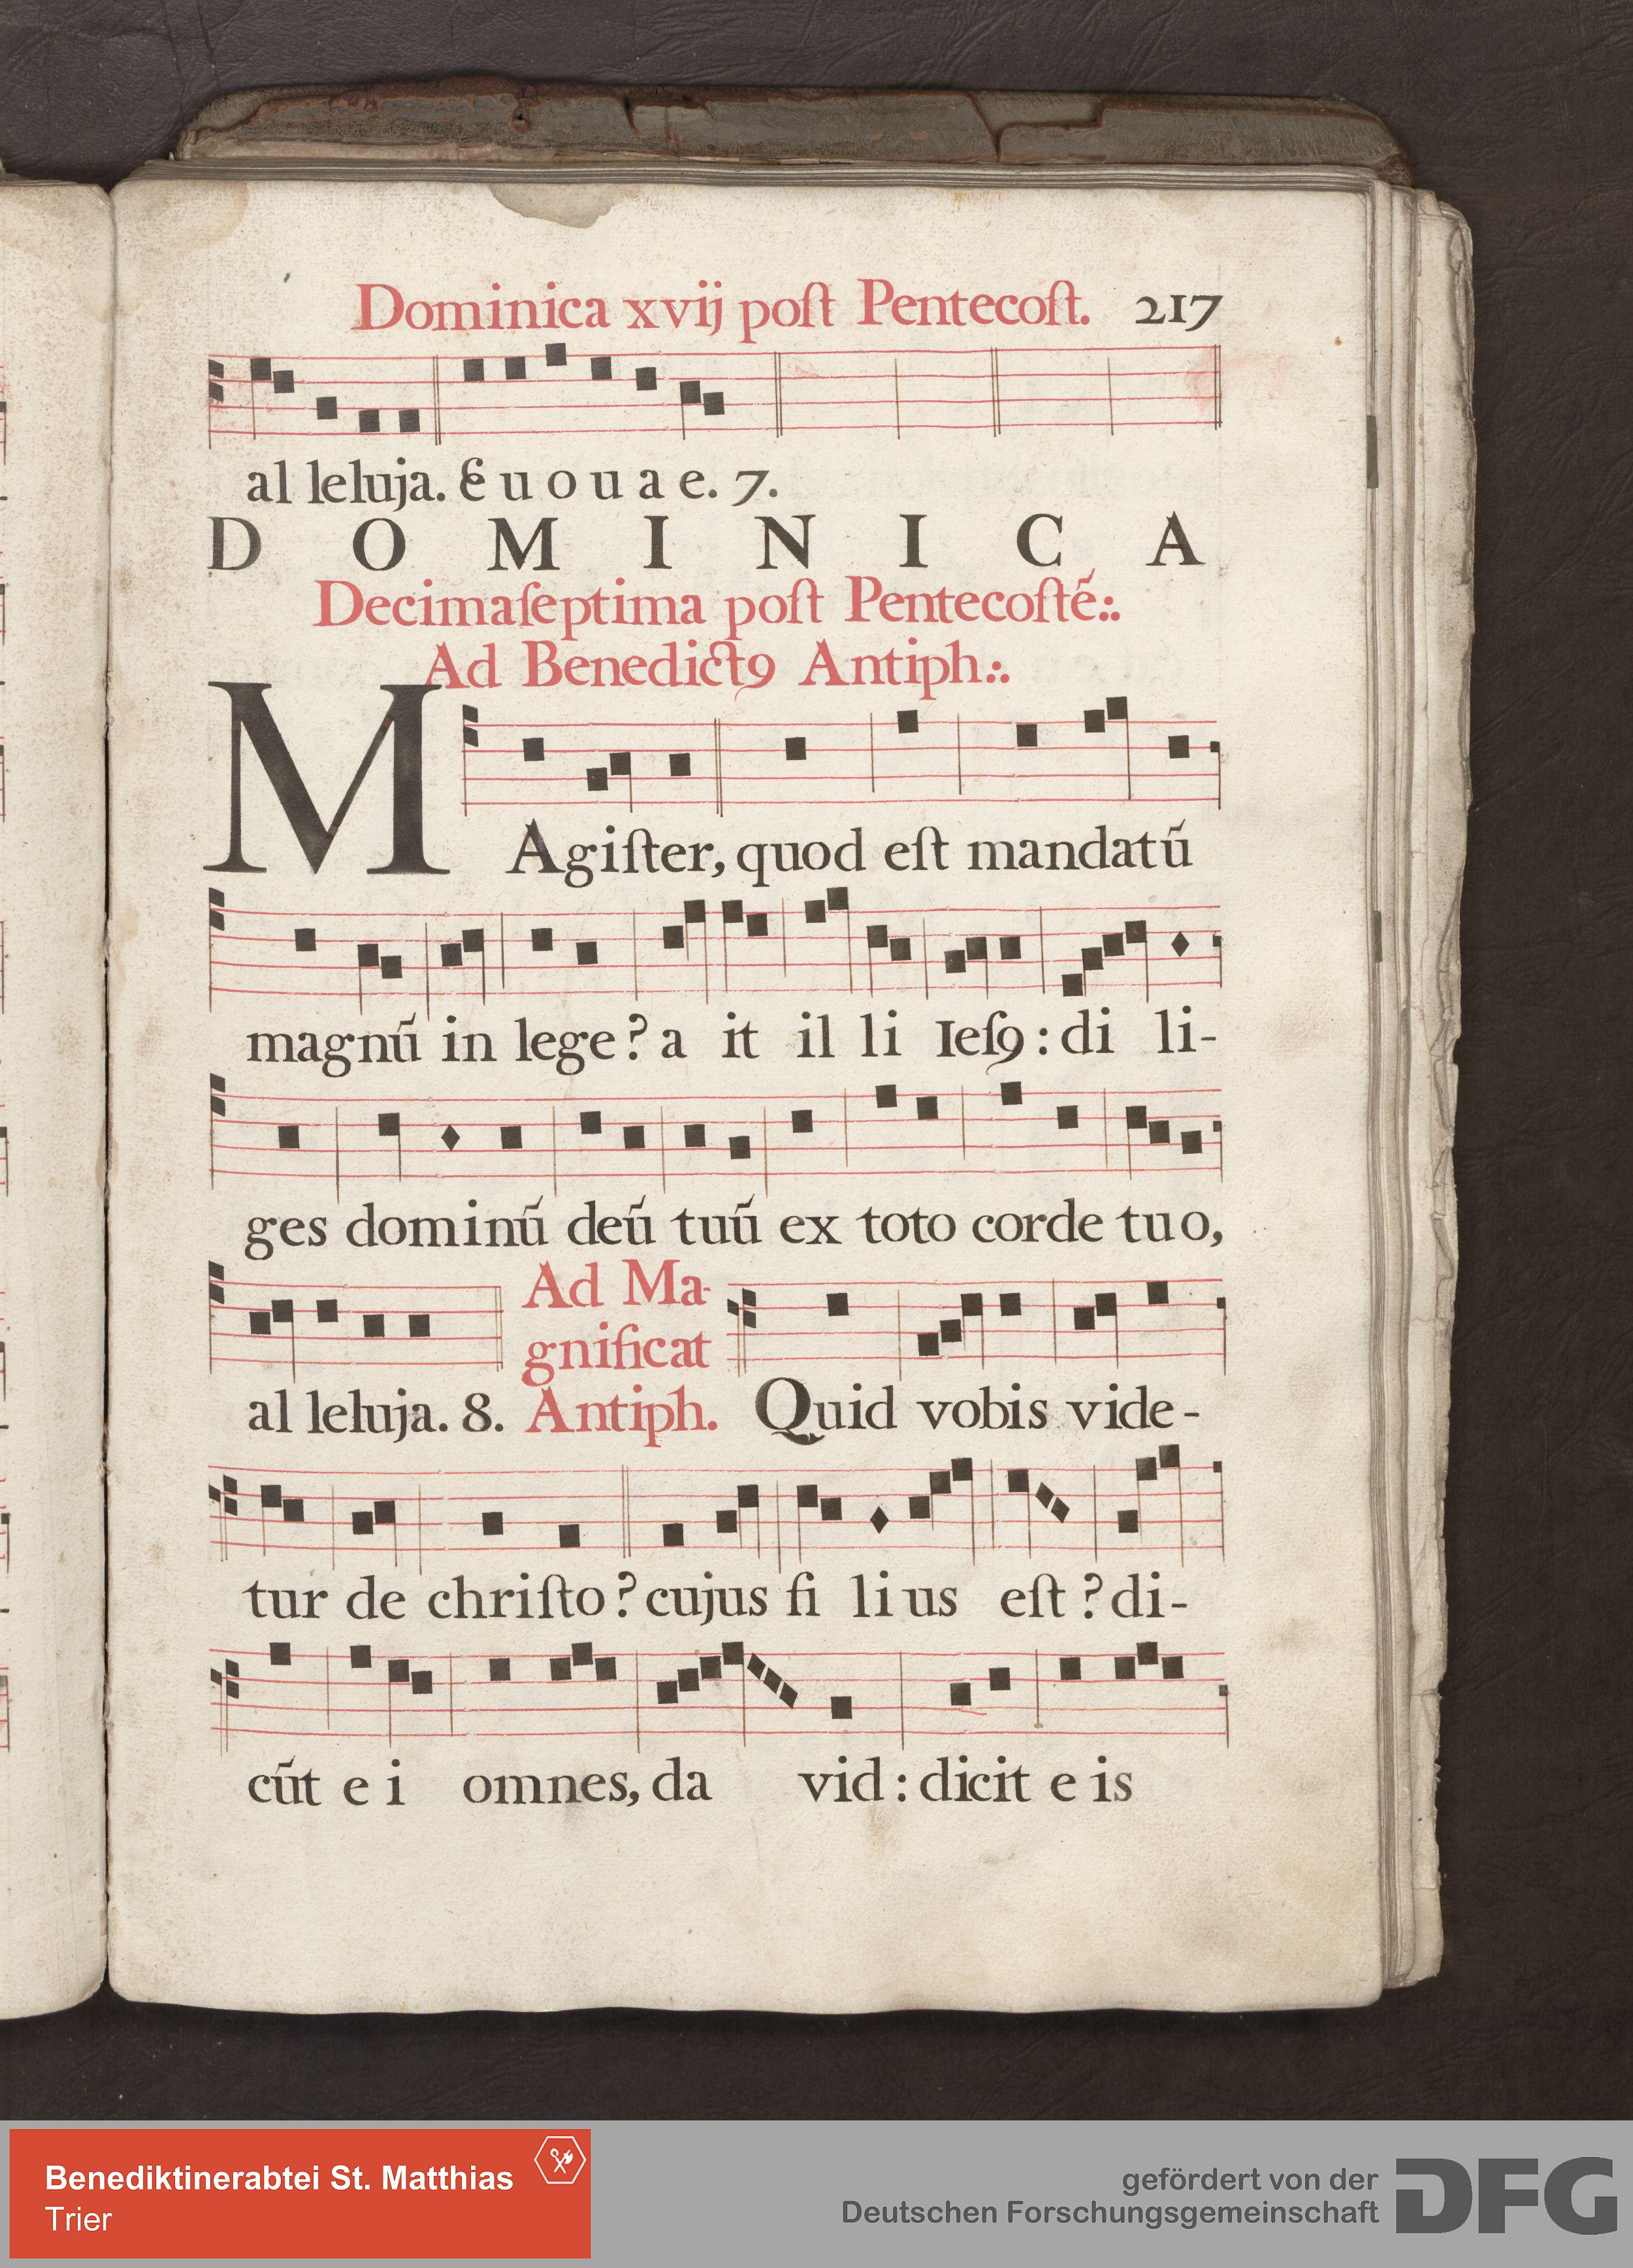 Dominica xvij poſt Pentecoſt. 217
al leluja. E u o u a e. 7.
D O M I N I C A
Decimaſeptima poſt Pentecoſtẽ:.
Ad Benedict9 Antiph:.
MAgiſter, quod eſt mandatũ
magnũ in lege? a it il li Ieſ9: di li-
ges dominũ deũ tuũ ex toto corde tuo,
al leluja. 8. Ad Ma-
gnificat
Antiph. Quid vobis vide-
tur de chriſto? cujus fi lius eſt? di-
cũt e i omnes, da vid: dicit e is
Benediktinerabtei St. Matthias
Trier
gefördert von der
Deutschen Forschungsgemeinschaft
DFG